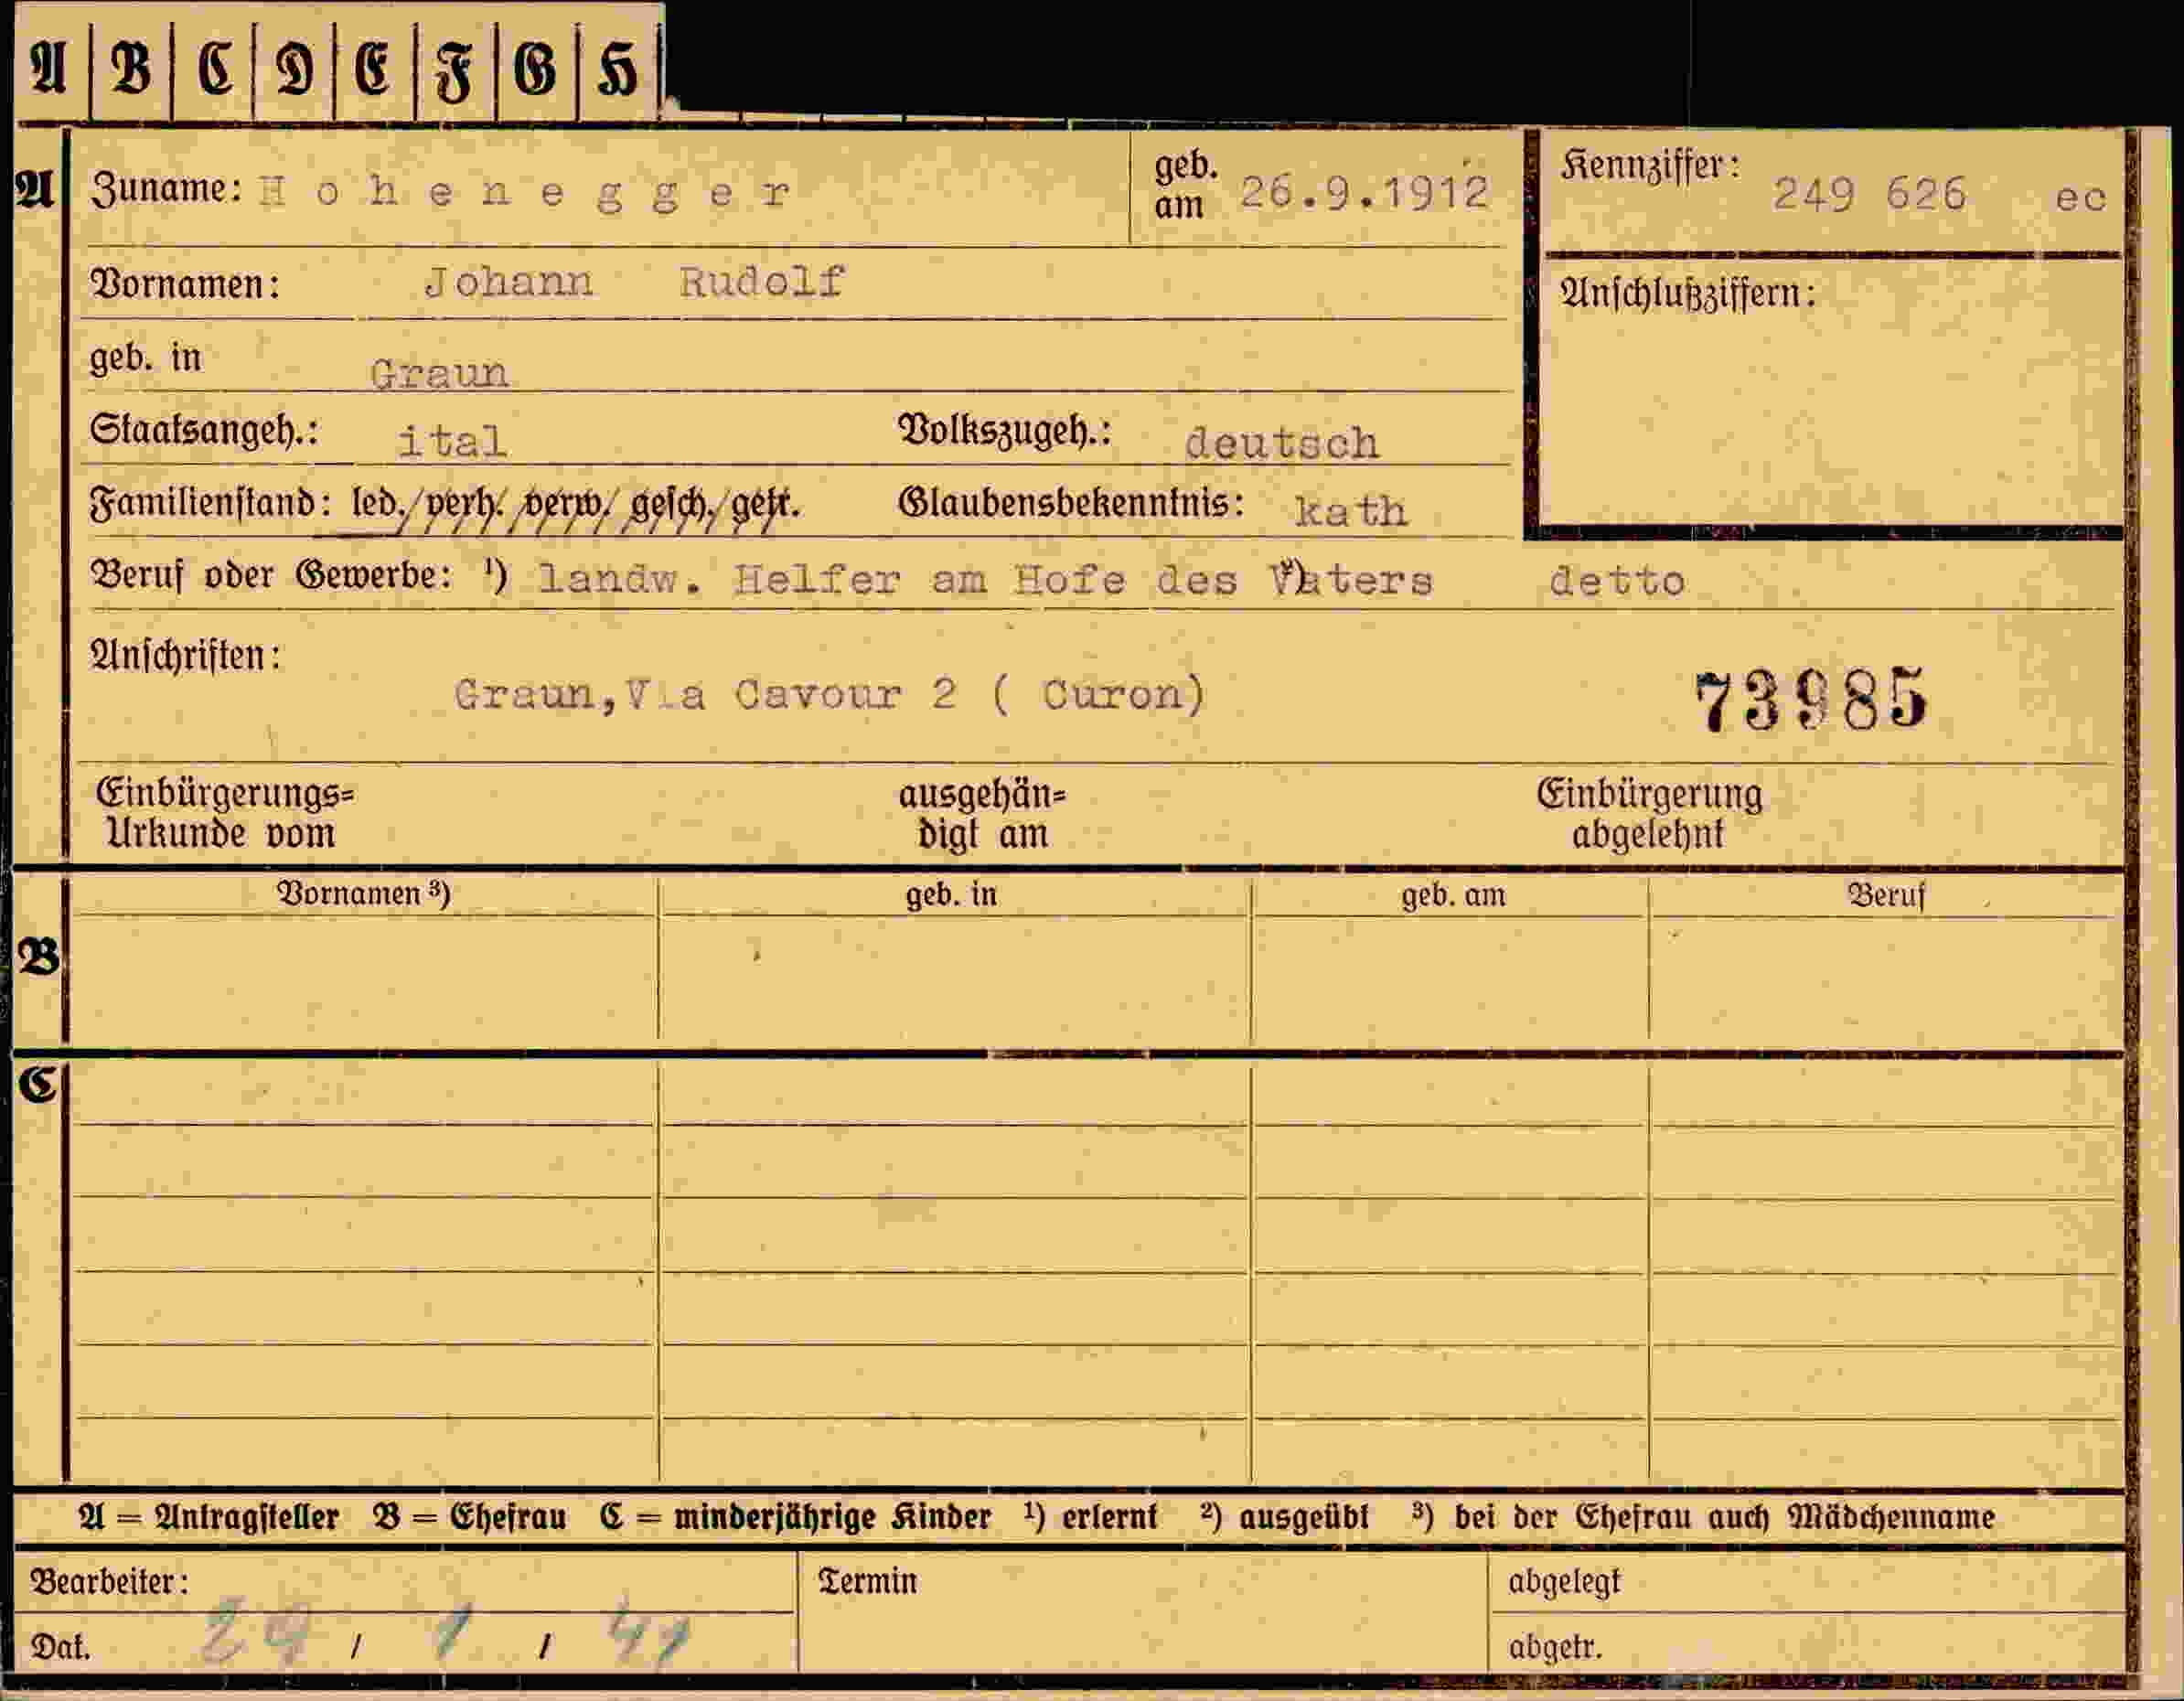 A B C D E F G H
A Zuname: Hohenegger geb. am 26.9.1912 Kennziffer: 249 626 ec
Vornamen: Johann Rudolf Anschlußziffern:
geb. in Graun
Staatsangeh.: ital Volkszugeh.: deutsch
Familienstand: led./verh./verw./gesch./getr. Glaubensbekenntnis: kath
Beruf oder Gewerbe: ¹) landw. Helfer am Hofe des Vaters detto
Anschriften:
Graun, Via Cavour 2 ( Curon) 73985
Einbürgerungs= ausgehän= Einbürgerung
Urkunde vom digt am abgelehnt
Vornamen ³) geb. in geb. am Beruf
B
C
A = Antragsteller B = Ehefrau C = minderjährige Kinder ¹) erlernt ²) ausgeübt ³) bei der Ehefrau auch Mädchenname
Bearbeiter: Termin abgelegt
Dat. 29 / 1 / 41 abgetr.